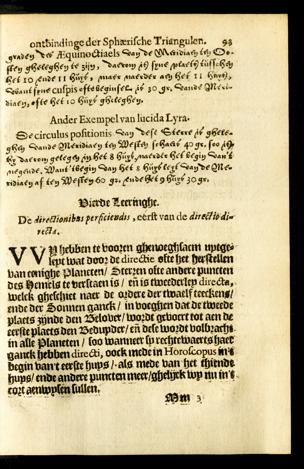 ontbindinge der Sphærische Triangulen. 93
graden der Æquinoctiaels van de Meridiaen ten Oo-
sten gheleghen te zijn, daerom is sijne plaets tusschen
het 10 ende 11 huys, maer naerder aen het 11 huys,
want sijne cuspis oftebeginsel is 30 gr. vande Meri-
diaen, ofte het 10 huys gheleghen.
Ander Exempel van lucida Lyra.
De circulus positionis van dese Sterre is ghele-
ghen vande Meridiaen ten Westen schaers 40 gr. soo is
sy daerom gelegen in het 8 huys, naerder het begin van't
negende. Want 'tbegin van het 8 huys legt van de Me-
ridiaen af ten Westen 60 gr. ende het 9 huys 30 gr.
Vierde Leeringhe.
De directionibus perficiendis, eerst van de directio di-
recta.
VVY hebben te vooren ghenoeghsaem uytge-
leyt wat door de directie ofte het herstellen
van eenighe Planeten/ Sterren ofte andere puncten
des Hemels te verstaen is/ en is tweederley directa,
welck gheschiet naer de ordere der twaelf teeckens/
ende der Sonnen ganck/ in voeghen dat de tweede
plaets zijnde den Belover/ wordt gevoert tot aen de
eerste plaets den Beduyder/ en dese wordt volbracht
in alle Planeten/ soo wanneer sy rechtewaerts haer
ganck hebben directi, oock mede in Horoscopus in't
begin van't eerste huys/ als mede van het thiende
huys/ ende andere puncten meer/ ghelijck wy nu in't
cort aenwysen sullen.
Mm 3